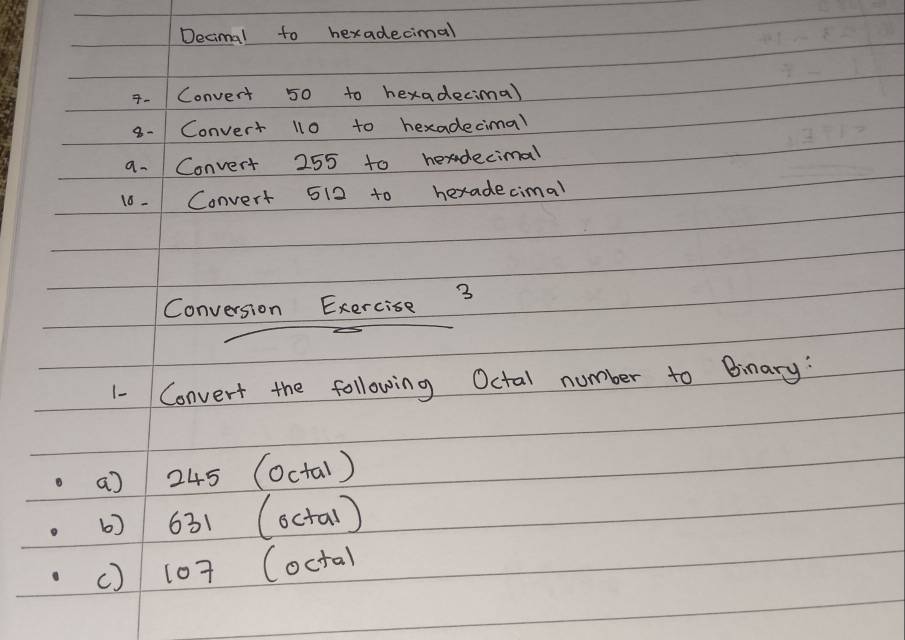 Decimal to hexadecimal
7- Convert 50 to hexadecimal
8- Convert 110 to hexadecimal
9- Convert 255 to hexadecimal
10- Convert 512 to hexadecimal
Conversion Exercise 3
1- Convert the following Octal number to Binary:
• a) 245 (Octal)
• b) 631 (octal)
• c) 107 (octal